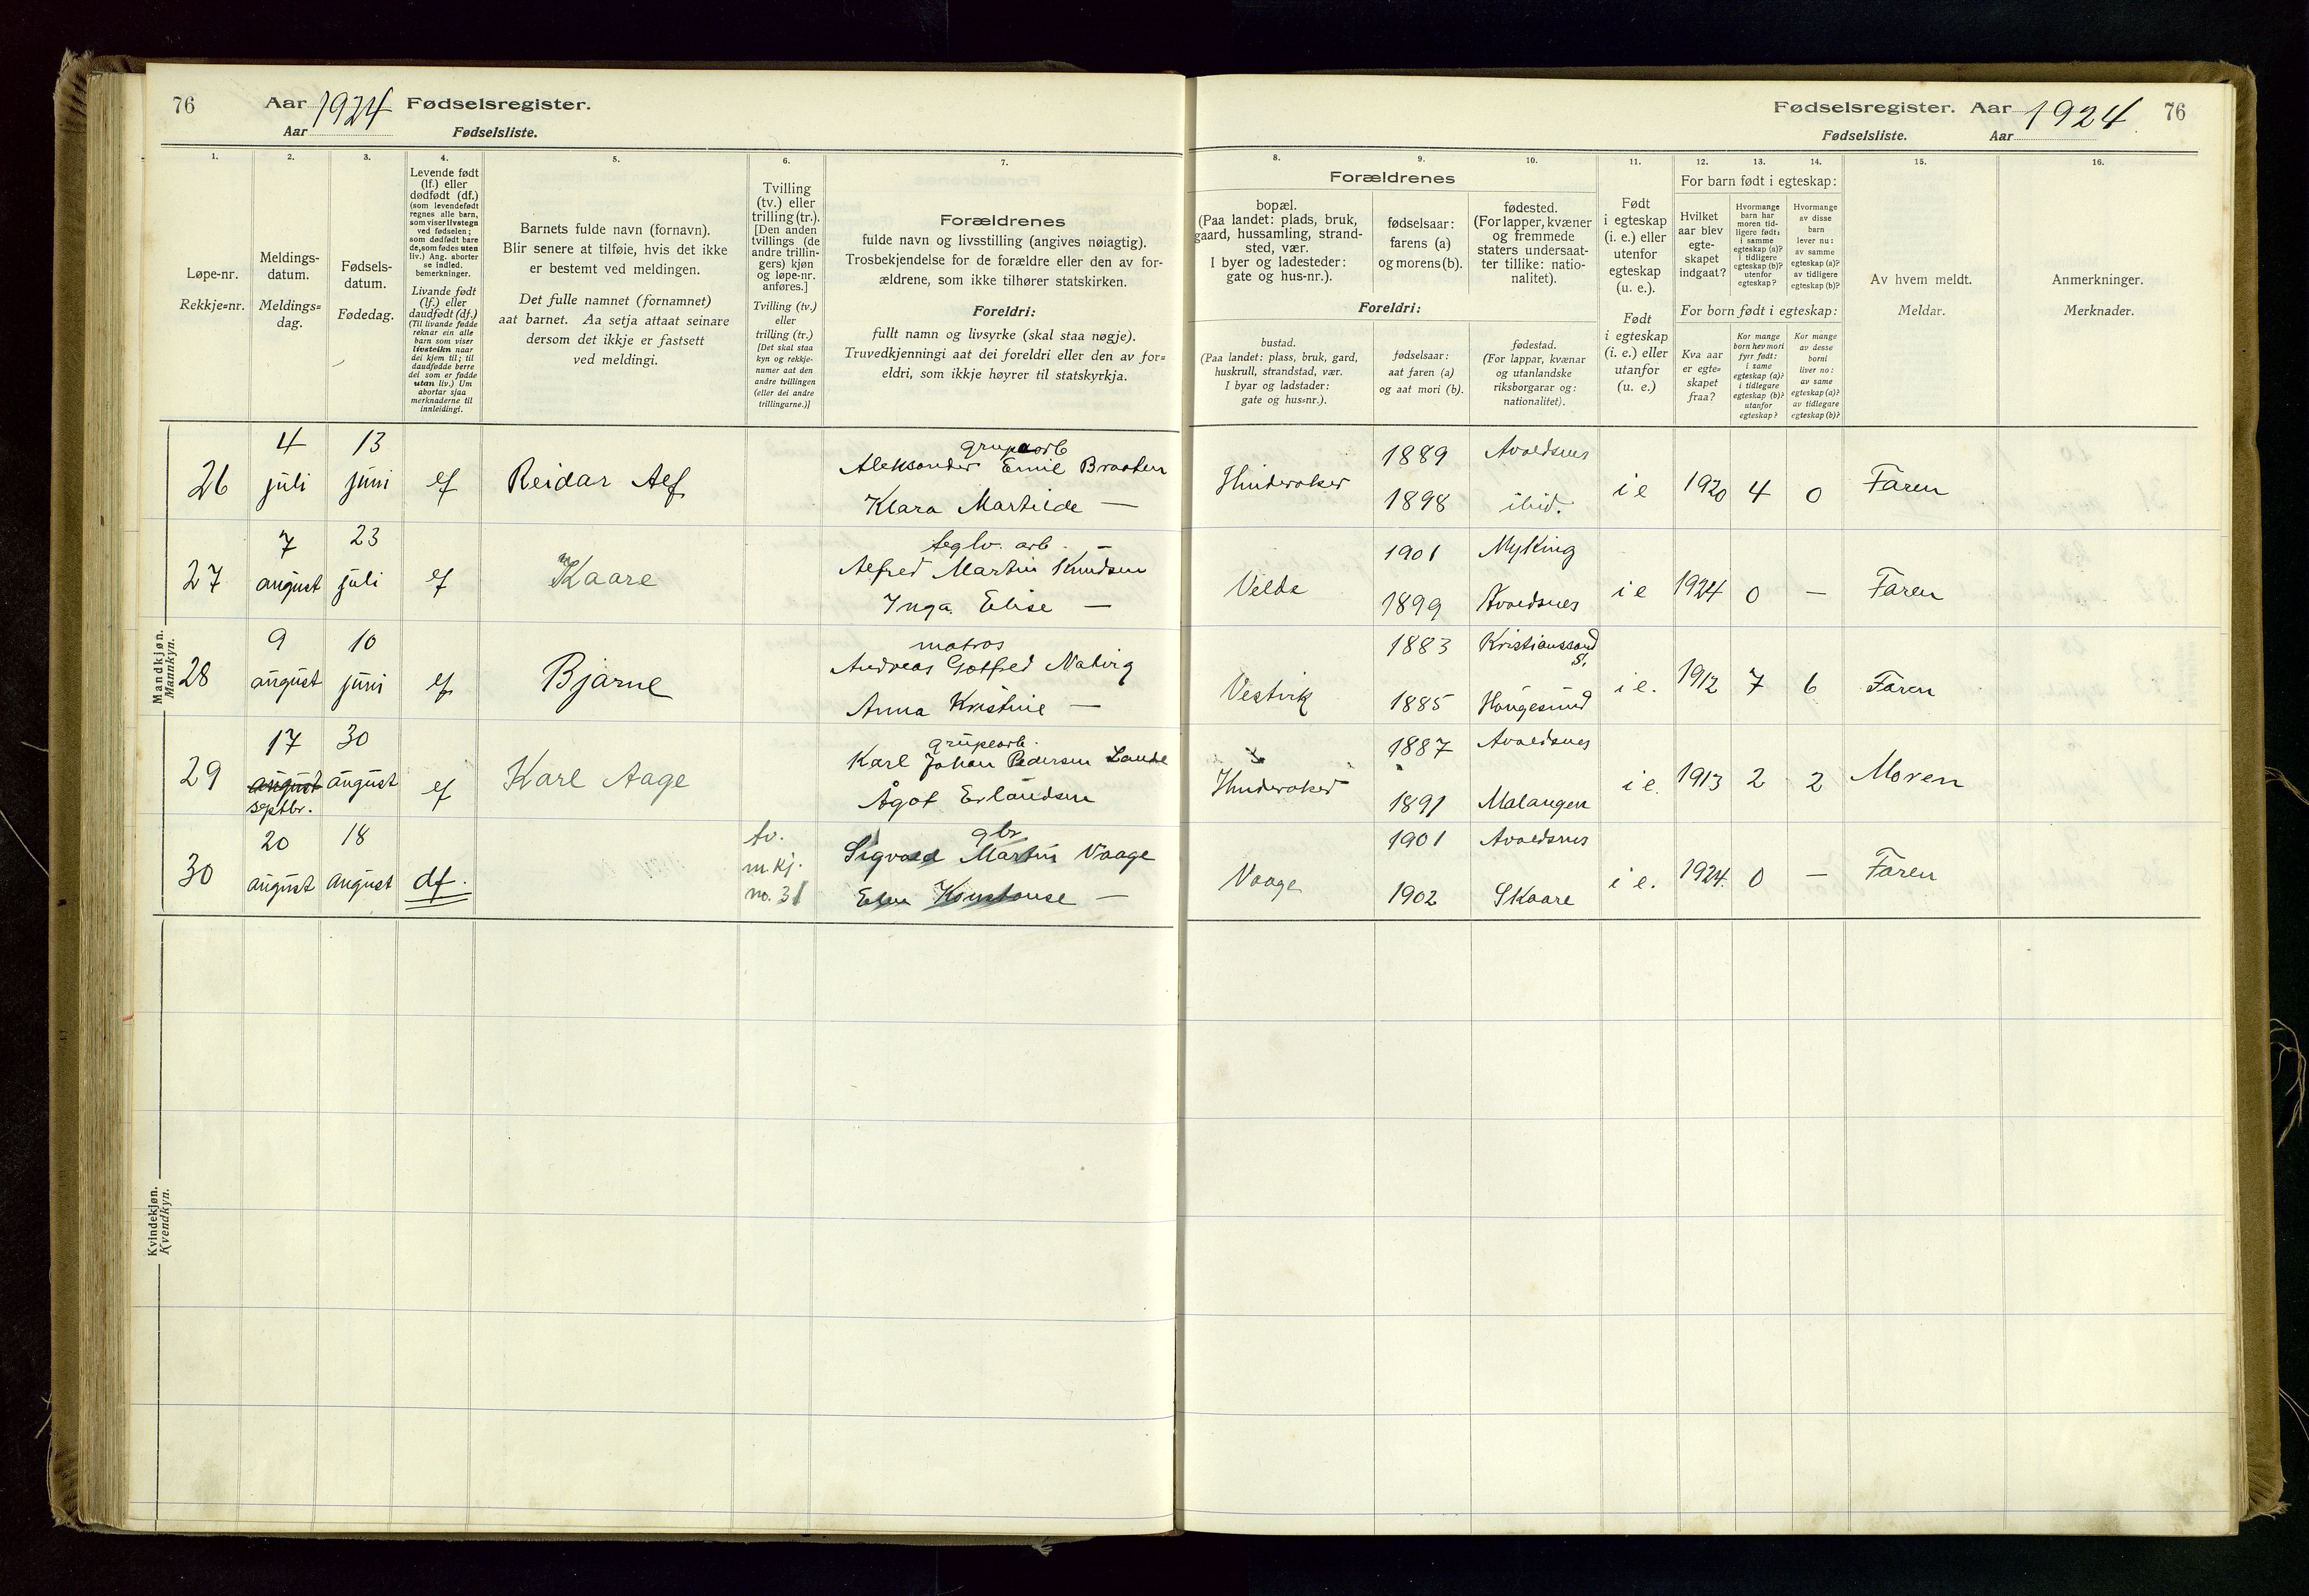 76 Aar 1924 Fødselsregister.
Aar Fødselsliste.
Fødselsregister. Aar 1924 76
Fødselsliste. Aar
1. 2. 3. 4. 5. 6. 7.
Løpe-nr.
Rekkje=nr.
Meldings-
datum.
Meldings=
dag.
Fødsels-
datum.
Fødedag.
Levende født
(lf.) eller
dødfødt (df.)
(som levendefødt
regnes alle barn,
som viser livstegn
ved fødselen;
som dødfødt bare
de, som fødes uten
liv.) Ang. aborter
se indled.
bemerkninger.
Livande født
(lf.) eller
daudfødt (df.)
(Til livande fødde
reknar ein alle
barn som viser
livsteikn naar
dei kjem til; til
daudfødde berre
dei som er fødde
utan liv.) Um
abortar sjaa
merknaderne til
innleidingi.
Barnets fulde navn (fornavn).
Blir senere at tilføie, hvis det ikke
er bestemt ved meldingen.
Det fulle namnet (fornamnet)
aat barnet. Aa setja attaat seinare
dersom det ikkje er fastsett
ved meldingi.
Tvilling
(tv.) eller
trilling (tr.).
[Den anden
tvillings (de
andre trillin-
gers) kjøn
og løpe-nr.
anføres.]
Tvilling (tv.)
eller
trilling (tr.)
[Det skal staa
kyn og rekkje-
numer aat den
andre tvillingen
(eller dei andre
trillingarne.)]
Forældrenes
fulde navn og livsstilling (angives nøiagtig).
Trosbekjendelse for de forældre eller den av for-
ældrene, som ikke tilhører statskirken.
Foreldri:
fullt namn og livsyrke (skal staa nøgje).
Truvedkjenningi aat dei foreldri eller den av for=
eldri, som ikkje høyrer til statskyrkja.
8. 9. 10. 11. 12. 13. 14. 15. 16.
Forældrenes
bopæl.
(Paa landet: plads, bruk,
gaard, hussamling, strand-
sted, vær.
I byer og ladesteder:
gate og hus-nr.).
fødselsaar:
farens (a)
og morens (b).
fødested.
(For lapper, kvæner
og fremmede
staters undersaat-
ter tillike: natio-
nalitet).
Foreldri:
bustad.
(Paa landet: plass, bruk, gard,
huskrull, strandstad, vær.
I byar og ladstader:
gate og hus=nr.).
fødselsaar:
aat faren (a)
og aat mori (b).
fødestad.
(For lappar, kvænar
og utanlandske
riksborgarar og:
nationalitet).
Født
i egteskap
(i. e.) eller
utenfor
egteskap
(u. e.).
Født
i egteskap
(i. e.) eller
utanfor
(u. e.)
For barn født i egteskap:
Hvilket
aar blev
egte-
skapet
indgaat?
Hvormange
barn har
moren tid-
ligere født:
i samme
egteskap (a)?
i tidligere
egteskap (b)?
utenfor
egteskap?
Hvormange
av disse
barn
lever nu:
av samme
egteskap (a)?
av tidligere
egteskap (b)?
For born født i egteskap:
Kva aar
er egte=
skapet
fraa?
Kor mange
born hev mori
fyrr født:
i same
egteskap (a)?
i tidlegare
egteskap (b)?
utanfor
egteskap?
Kor mange
av desse
borni
liver no:
av same
egteskap (a)?
av tidlegare
egteskap (b)?
Av hvem meldt.
Meldar.
Anmerkninger.
Merknader.
Mandkjøn.
Mannkyn.
26 4 juli 13 juni lf Reidar Alf
grubearb
Aleksander Emil Braaten
Klara Martilde —
Hinderaker 1889 Avaldsnes
1898 ibid.
i e 1920 4 0 Faren
27 7 august 23 juli lf Kaare
teglv. arb.
Alfred Martin Knudsen
Inga Elise —
Velde 1901 Myking
1899 Avaldsnes
i e 1924 0 — Faren
28 9 august 10 juni lf Bjarne
matros
Andreas Gotfred Nabirg
Anna Kristine —
Vestvik 1883 Kristianssand S.
1885 Haugesund
i e. 1912 7 6 Faren
29 17 august septbr. 30 august lf Karl Aage
grubearb.
Karl Johan Pedersen Lande
Ågot Erlandsen
Hinderaker 1887 Avaldsnes
1891 Malangen
i e. 1913 2 2 Moren
30 20 august 18 august df.
tv.
m.kj.
no. 31
gbr
Sigvald Martin Vaage
Elen Konstanse —
Vaage 1901 Avaldsnes
1902 Skaare
i e. 1924. 0 — Faren
Kvindekjøn.
Kvendkyn.